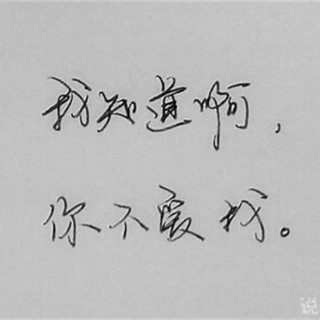 我知道啊,
你不爱我。
说